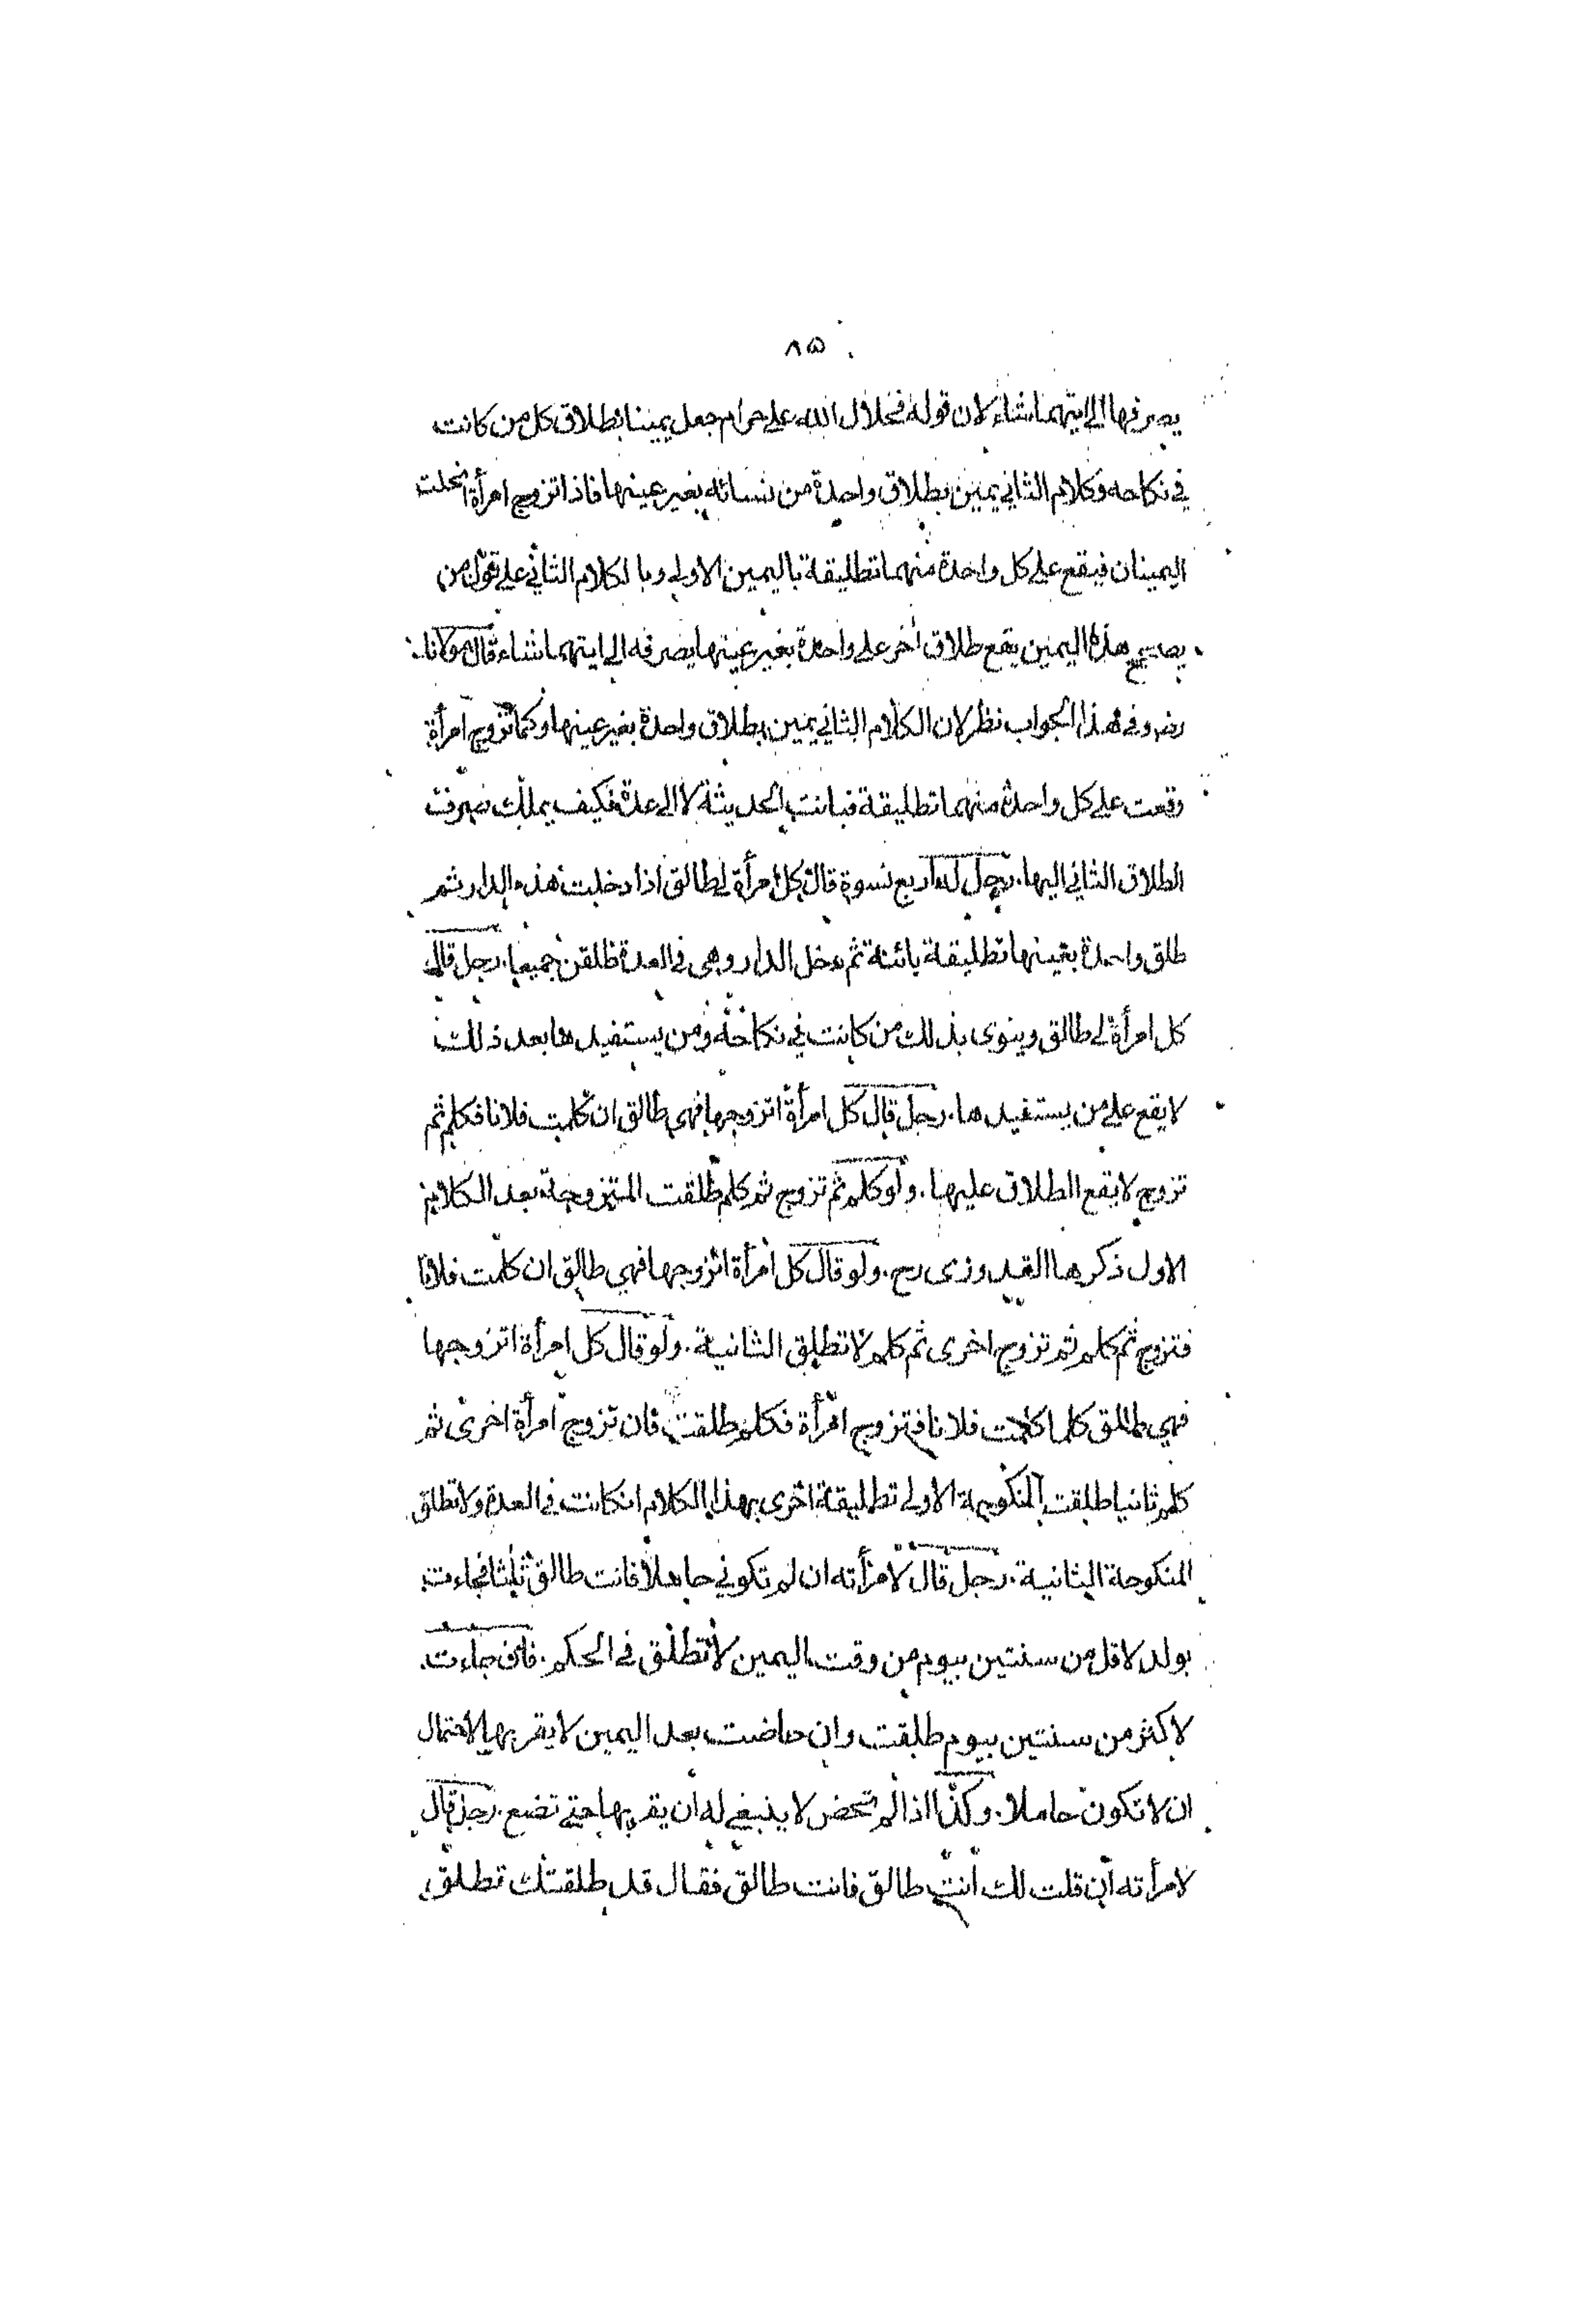 ٨٥
يصرفها الى ايتهما شاء لان قوله فحلال الله على حرام جعل يمينا بطلاق كل من كانت
في نكاحه وكلام الثاني يمين بطلاق واحدة من نسائه بغير عينها فاذا تزوج امرأة انحلت
اليمينان فيقع على كل واحدة منهما تطليقة باليمين الاولى وبالكلام الثاني على قول من
يصحح هذه اليمين يقع طلاق آخر على واحدة بغير عينها يصرفه الى ايتهما شاء قال مولانا
رضه وفي هذا الجواب نظر لان الكلام الثاني يمين بطلاق واحدة بغير عينها وكما تزوج امرأة
وقعت على كل واحدة منهما تطليقة فبانت الحديثة لا الى عدة فكيف يملك صرف
الطلاق الثاني اليها. رجل له اربع نسوة قال كل امرأة لي طالق اذا دخلت هذه الدار ثم
طلق واحدة بعينها تطليقة بائنة ثم دخل الدار وهي في العدة طلقن جميعا. رجل قال
كل امرأة لي طالق وينوى بذلك من كانت في نكاحه ومن يستفيدها بعد ذلك
لا يقع على من يستفيدها. رجل قال كل امرأة اتزوجها فهي طالق ان كلمت فلانا فكلم ثم
تزوج لا يقع الطلاق عليها. ولو كلم ثم تزوج ثم كلم طلقت المتزوجة بعد الكلام
الاول ذكرها القدوري رح. ولو قال كل امرأة اتزوجها فهي طالق ان كلمت فلانا
فتزوج ثم كلم ثم تزوج اخرى ثم كلم لا تطلق الثانية. ولو قال كل امرأة اتزوجها
فهي طالق كلما كلمت فلانا فتزوج امرأة فكلم طلقت فان تزوج امرأة اخرى ثم
كلم ثانيا طلقت المنكوحة الاولى تطليقة اخرى بهذا الكلام انكانت في العدة ولا تطلق
المنكوحة الثانية. رجل قال لامرأته ان لم تكوني حاملا فانت طالق ثلثا فجاءت
بولد لاقل من سنتين بيوم من وقت اليمين لا تطلق في الحكم. فان جاءت
لاكثر من سنتين بيوم طلقت وان حاضت بعد اليمين لا يقربها لاحتمال
ان لا تكون حاملا. وكذا اذا لم تحض لا ينبغي له ان يقربها حتى تضع. رجل قال
لامرأته ان قلت لك انت طالق فانت طالق فقال قد طلقتك تطلق